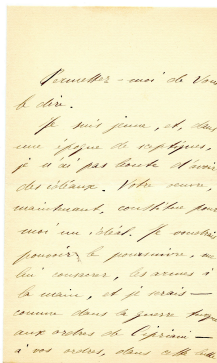 Permettez-moi de Vous
le dire.
Je suis jeune, et, dans
une époque de sceptiques,
je n'ai pas honte d'avoir
des idéaux. Votre œuvre,
maintenant, constitue pour
moi un idéal. Je voudrais
pouvoir le poursuivre, me
lui consacrer, les armes à
la main, et je serais —
comme dans la guerre
aux ordres de Cipriani —
à vos ordres, dans cette